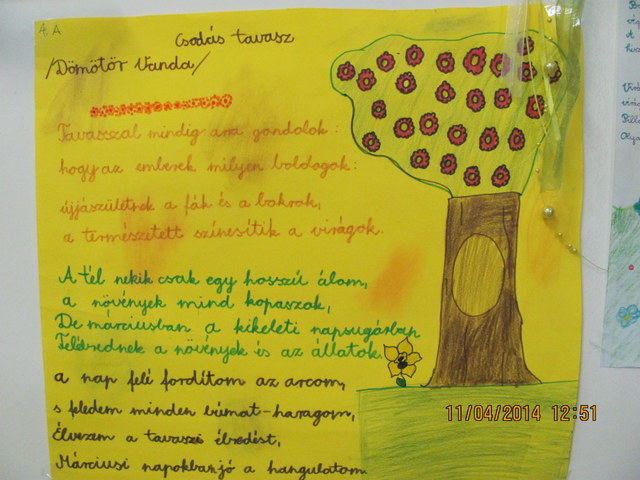 4. A
Csodás tavasz
/Dömötör Vanda/
Tavasszal mindig arra gondolok:
hogy az emberek milyen boldogok:
újjászületnek a fák és a bokrok,
a természetett színesítik a virágok.
A tél nekik csak egy hosszú álom,
a növények mind kopaszok,
De márciusban a kikeleti napsugárban
Felébrednek a növények és az állatok.
a nap felé fordítom az arcom,
s feledem minden búmat-haragom,
Élvezem a tavaszi ébredést,
Márciusi napokban jó a hangulatom.
11/04/2014 12:51